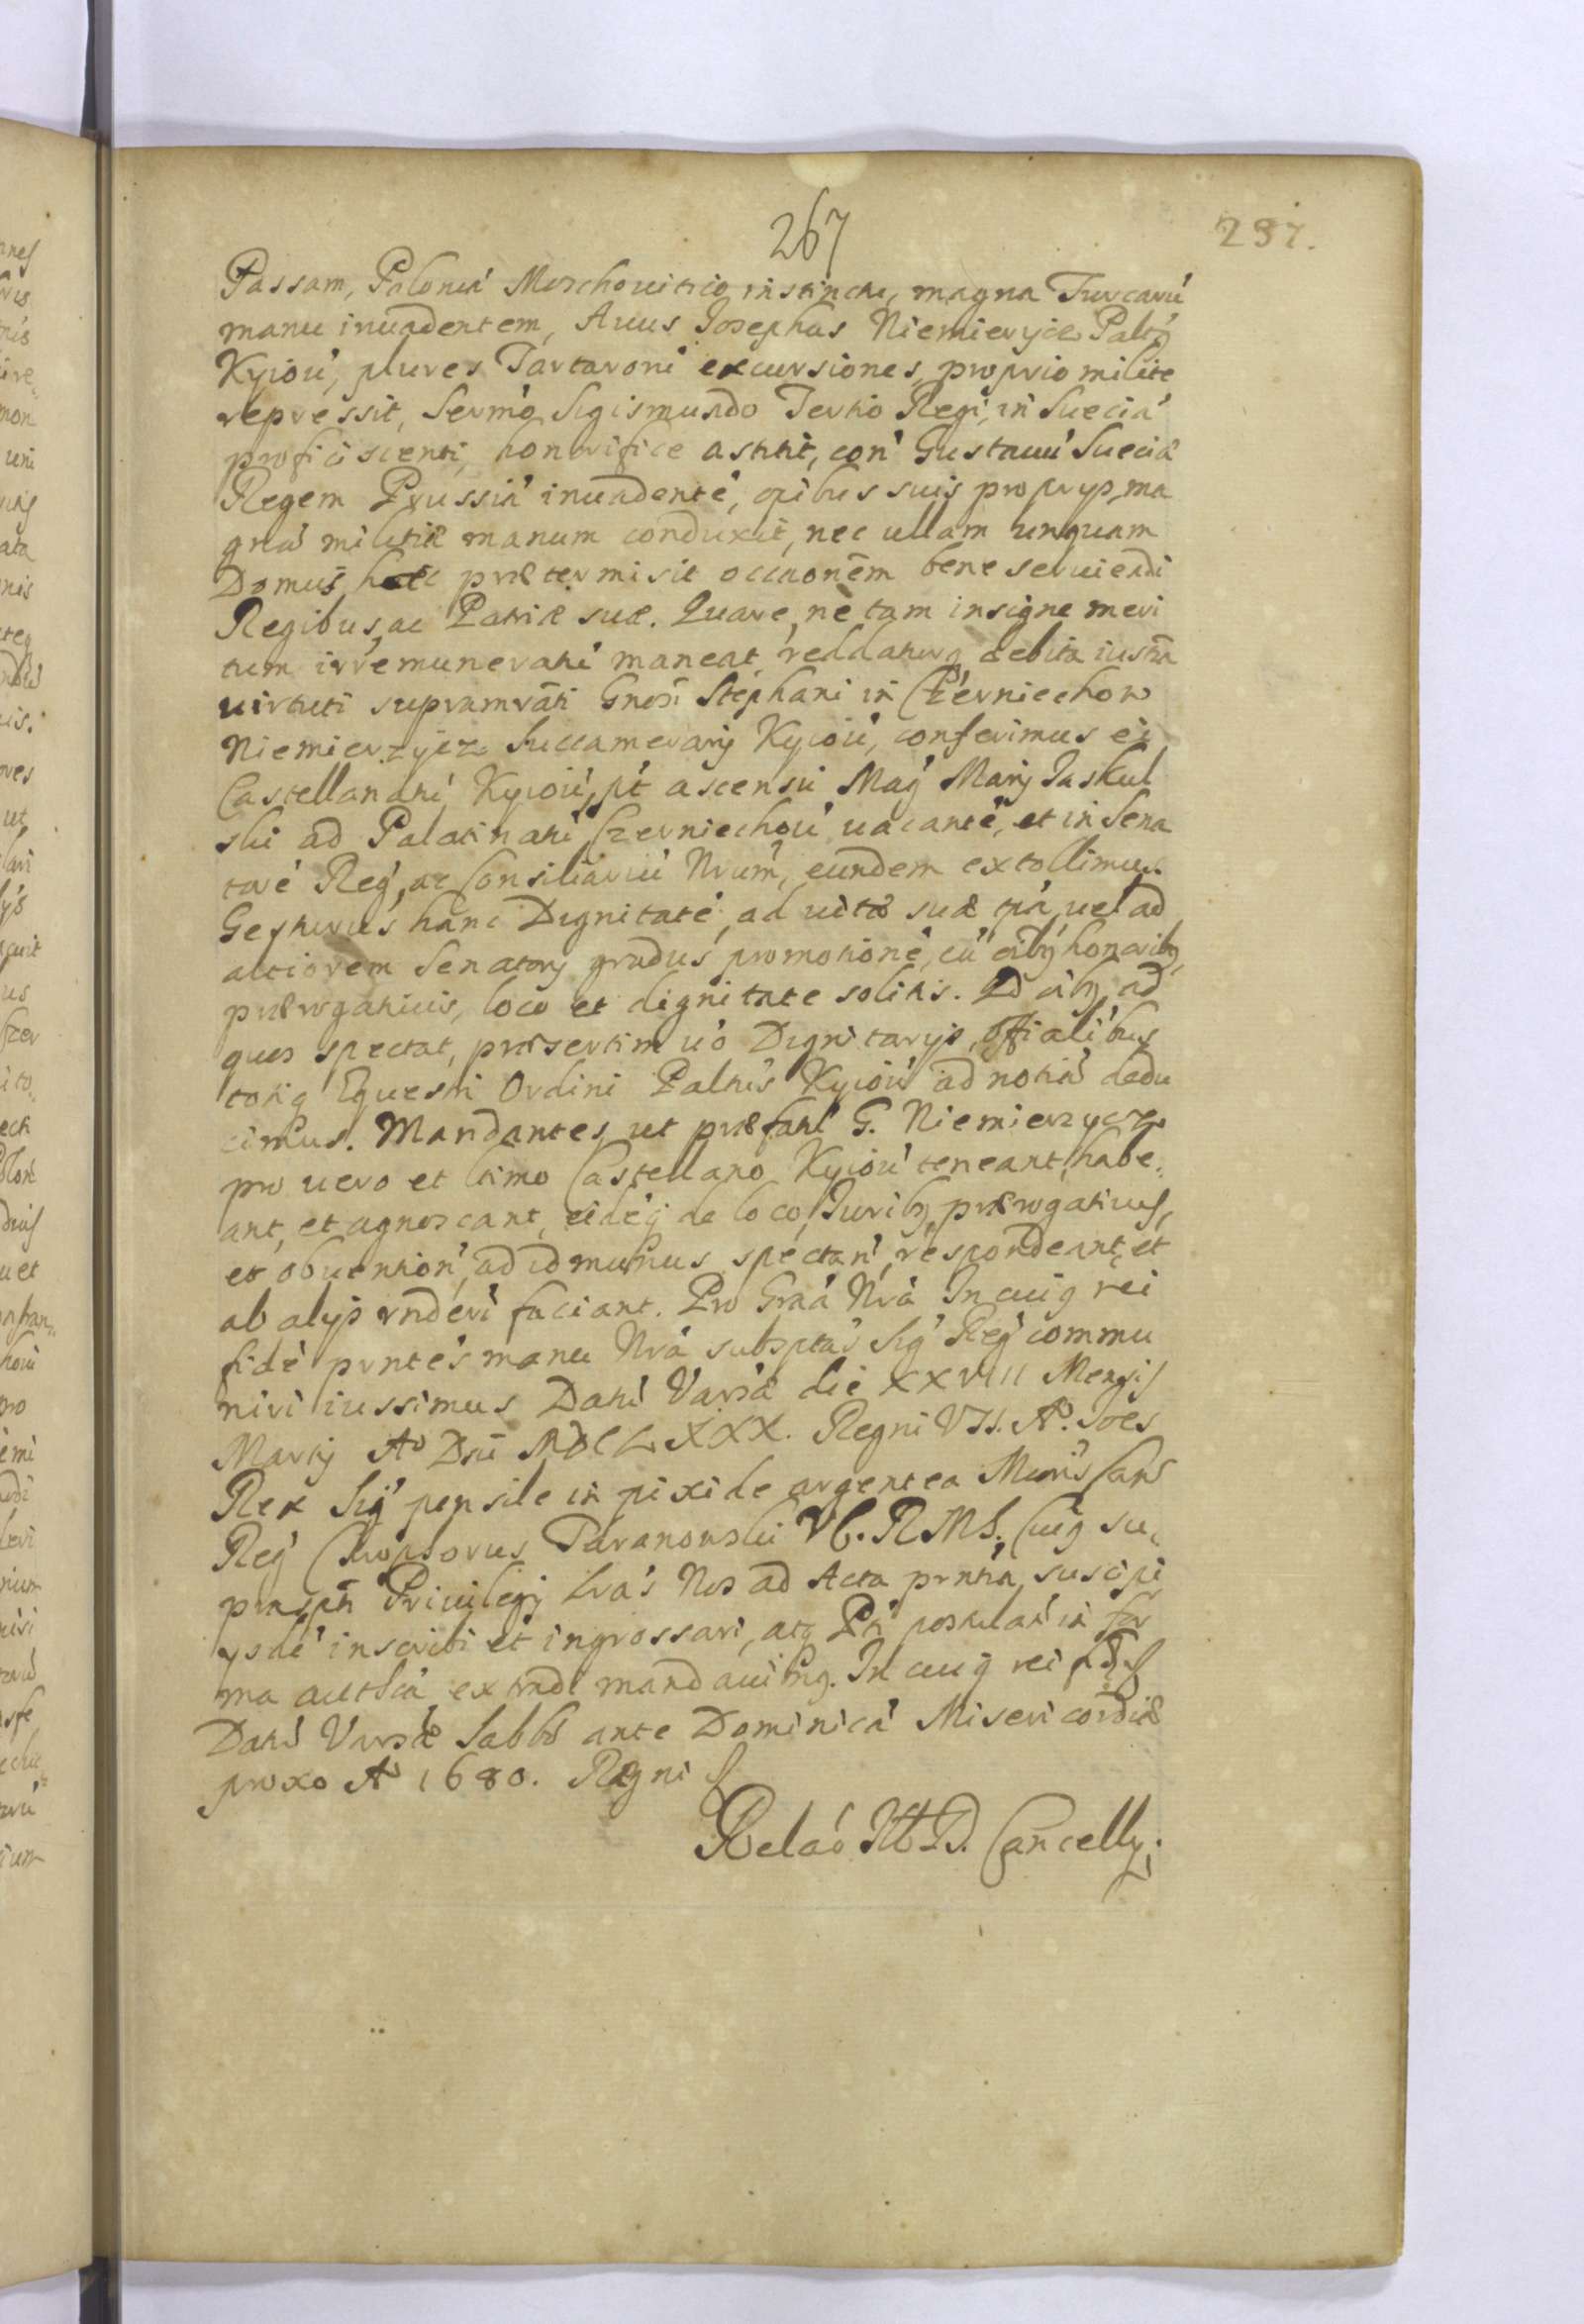 267
237.
Passam, Poloniá Moschouitico instinctu, magna Turcarú
manu inuadentem, Auus Josephus Niemierycz Paltꝰ
Kyioú, plures Tartaroru excursiones, proprio milite
repressit, Sermo Sigismundo Tertio Regi, in Sueciá
proficiscenti, honorifice astitit, con' Gustauú Sueciæ
Regem Prussiá inuadenté, opibus suis proprys, ma
gná militiæ manum conduxit, nec ullam unquam
Domus hæc prætermisit occaonem bene seruiendi
Regibus ac Patriæ suæ. Quare, ne tam insigne meri
tum irremuneratú maneat, reddaturq debita iusta
uirtuti supramrāti Gnosi Stephani in Czerniechow
Niemierzycz Succamerarij Kyioú, conferimus ei
Castellanatú Kyioú, pt ascensu Mag Marij Jaskul
ski ad Palatinatú Czerniechoú uacante, et in Sena
toré Reg, ac Consiliariú Nrum, eundem extollimus.
Gesturus hanc Dignitaté, ad uitæ suæ tpa, uel ad
altiorem Senatorij gradus promotioné, cú oibꝫ honoribꝫ,
prærogatiuis, loco et dignitate solitis. Qd oibꝫ, ad
quos spectat, præsertim uó Dignitarys, Offialibus
totiq Equestri Ordini Paltus Kyiou ad notiá dedu
cimus. Mandantes, ut præfatú G. Niemierzycz
pro uero et ltimo Castellano Kyiou teneant, habe
ant, et agnoscant, eidéq de loco, Juribꝫ, prærogatiuis,
et obuention', ad id munus spectan', respondeant, et
ab alys rnderi faciant. Pro Graá Nrá In cuiq rei
fidé prntés manu Nrá subsptas Sig Reg commu
niri iussimus Datú Varsæ die XXVIII Mensis
Martij Aº Dni MDCLXXX. Regni VII. Aº. Joes
Rex Sig pensile in pixide argentea Minis Canc
Reg Chrophorus Taranowski VC. RMS. Cuiq su
prasptí Priuilegij lras Nos ad Acta prntia, suscipi
ysdé inscribi et ingrossari, atq Pti postulan' in for
ma authca extndi mandauimq. In cuiq rei fid &
Datú Varsæ Sabbo ante Dominicá Misericordiæ
proxo Aº 1680. Regni &
Relaó Ill D. Cancellꝫ.